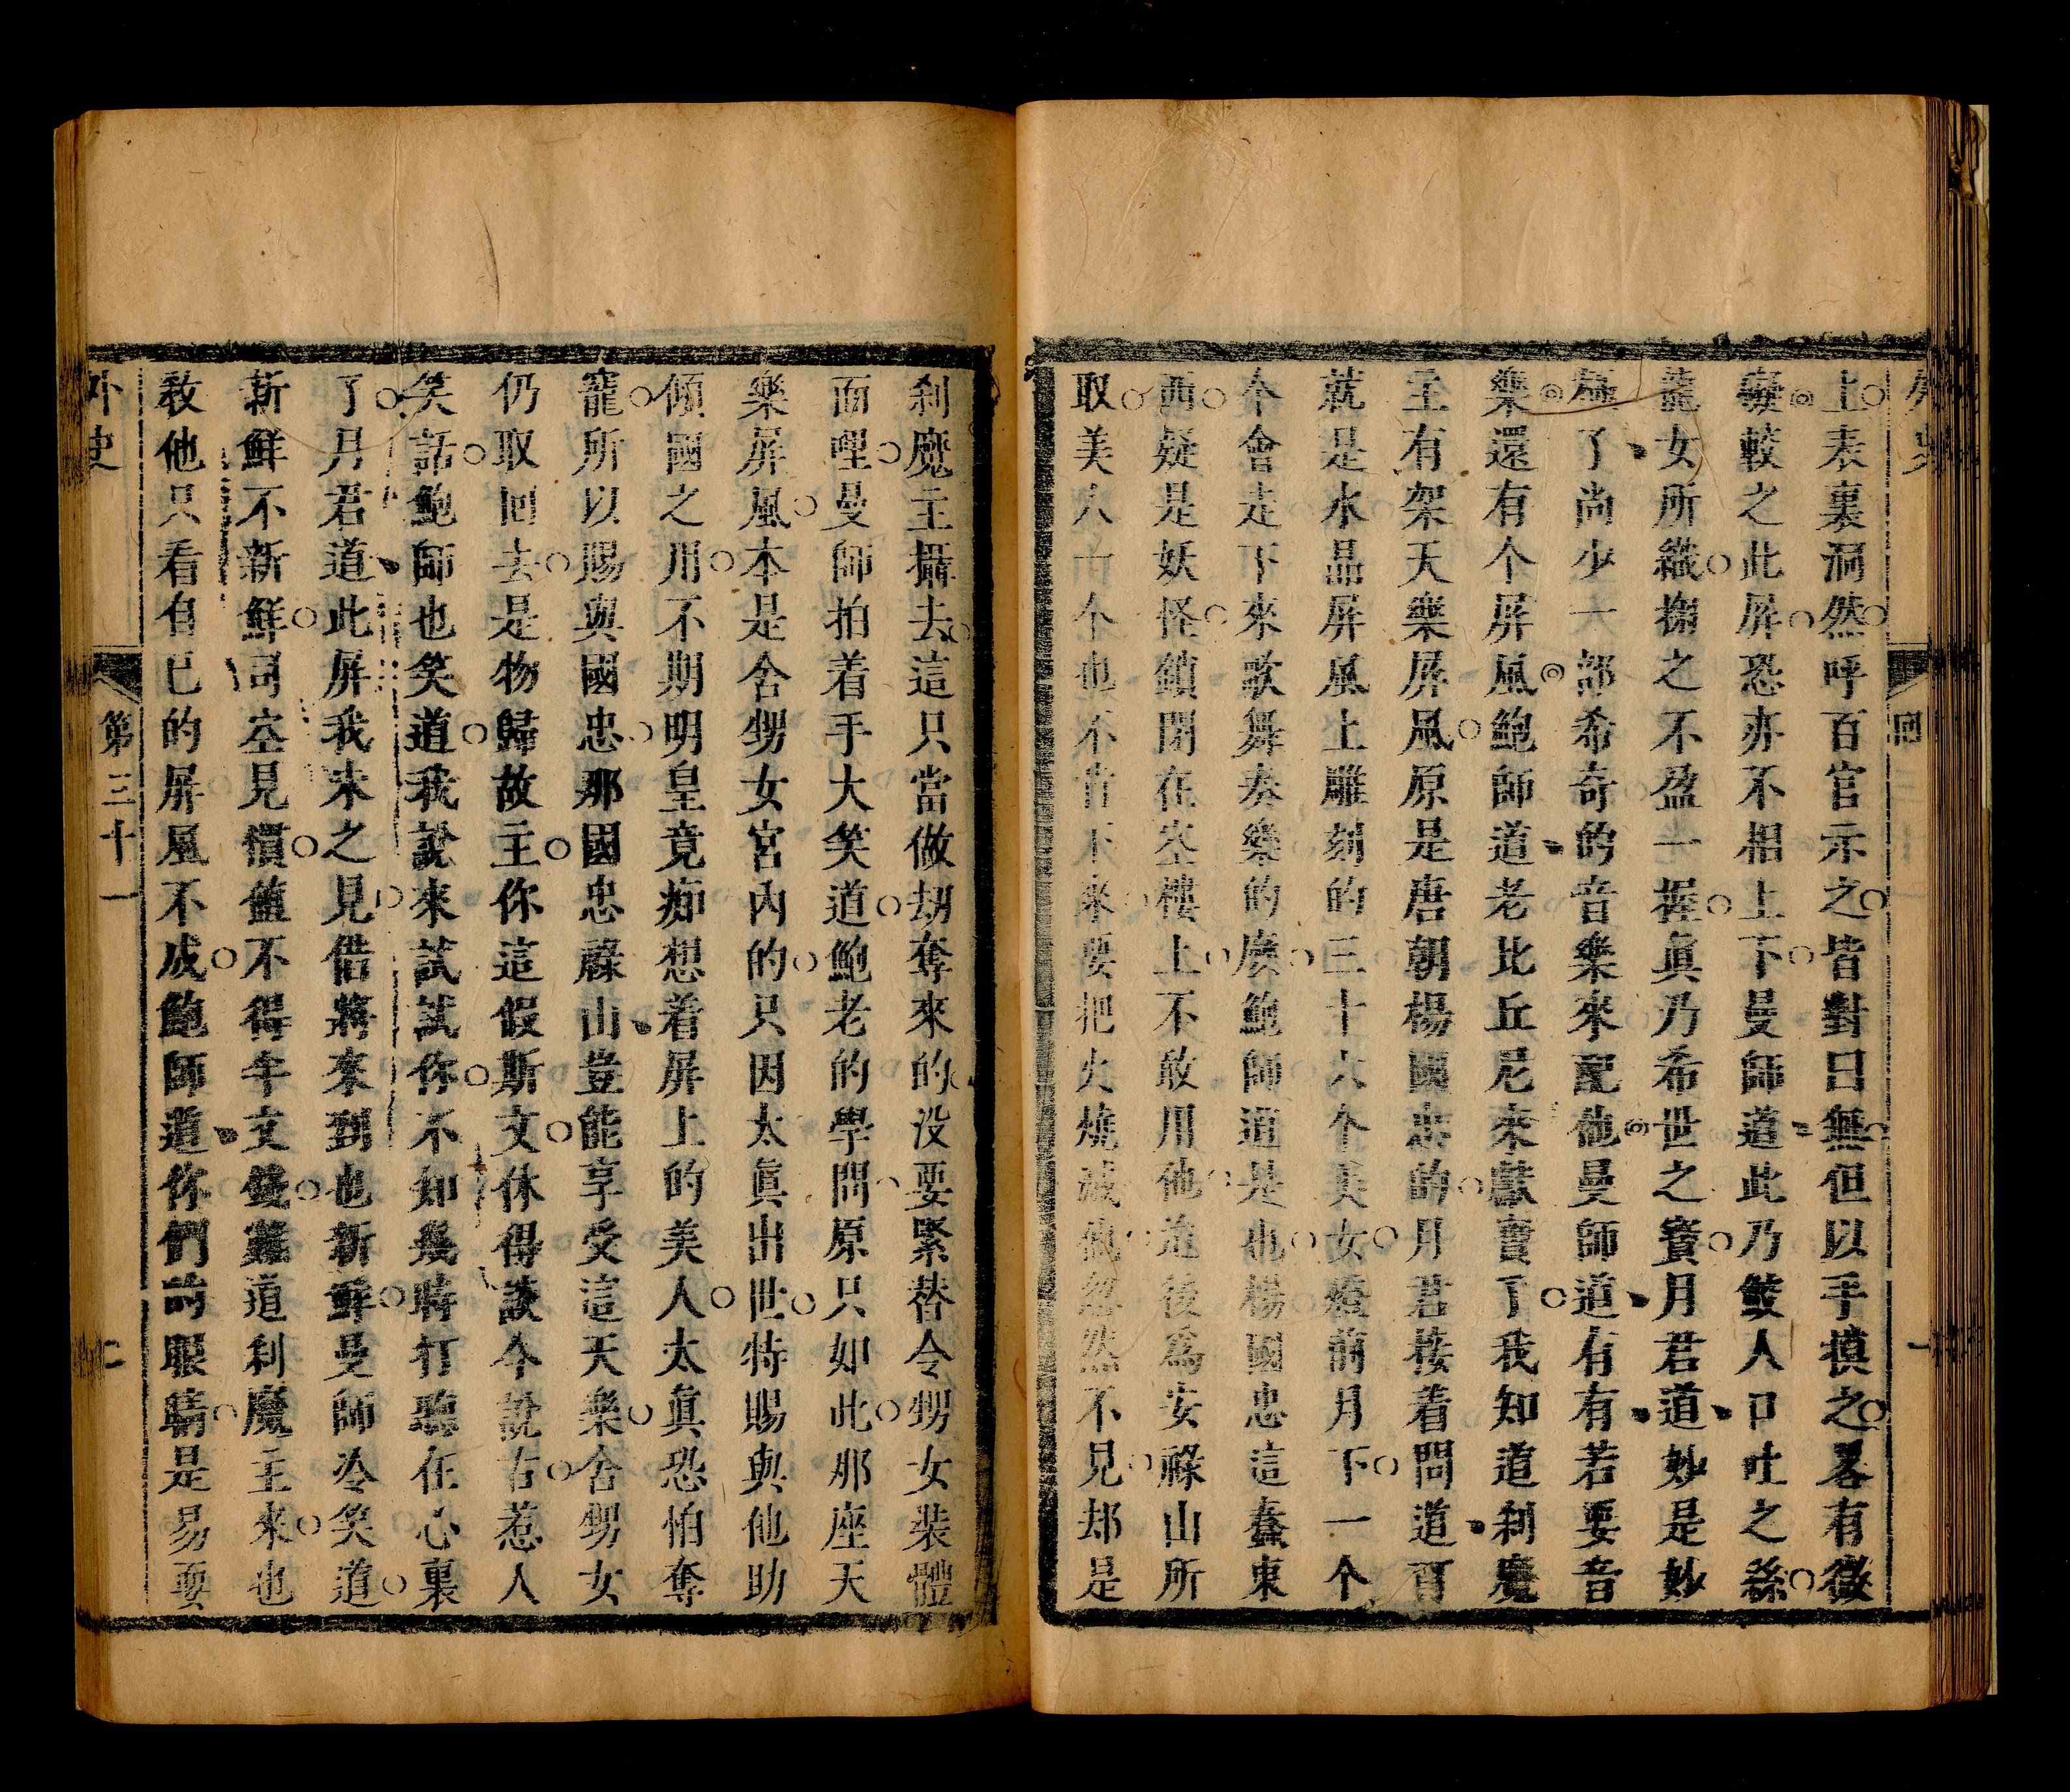 上表裏洞然呼百官示之皆對曰無但以手摸之畧有微
礙較之此屏恐亦不相上下曼師道此乃鮫人口吐之絲
龍女所織掬之不盈一握眞乃希世之寶月君道妙是妙
極了尚少一部希奇的音樂來配他曼師道有有若要音
樂還有个屏風鮑師道老比丘尼來獻寶了我知道刹魔
主有架天樂屏風原是唐朝楊國忠的月君接着問道可
就是水晶屏風上雕刻的三十六个美女燈前月下一个
个會走下來歌舞奏樂的麽鮑師道是也楊國忠這蠢東
西疑是妖怪鎖閉在空樓上不敢用他後爲安祿山所
取美人一个也不肯下來要把火燒滅他忽然不見却是
刹魔主攝去這只當做刼奪來的没要緊替令甥女裝體
面哩曼師拍着手大笑道鮑老的學問原只如此那座天
樂屏風本是舍甥女宮內的只因太眞出世特賜與他助
傾國之用不期明皇竟痴想着屏上的美人太眞恐怕奪
寵所以賜與國忠那國忠祿山豈能享受這天樂舍甥女
仍取回去是物歸故主你這假斯文休得談今說古惹人
笑話鮑師也笑道我說來試試你不知幾時打聽在心裏
了月君道此屏我未之見借將來到也新鮮曼師冷笑道
斯鮮不新鮮司空見慣儘不得年文錢難道刹魔主來也
敎他只看自已的屏風不成鮑師道你們的眼睛是易要
外史
第三十一
二
外史
回
一